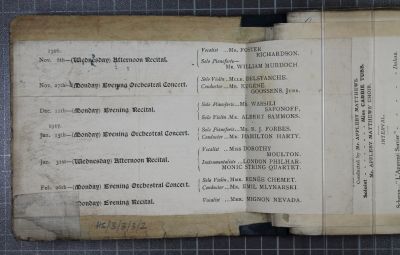 1916.
Nov. 8th—(Wednesday) Afternoon Recital.
Vocalist ...Mr. FOSTER
RICHARDSON.
Solo Pianoforte—
Mr. WILLIAM MURDOCH
Nov. 27th—(Monday) Evening Orchestral Concert.
Solo Violin...Mdlle. DELSTANCHE.
Conductor ...Mr. EUGENE
GOOSSENS, Junr.
Dec. 11th—(Monday) Evening Recital.
Solo Pianoforte...Mr. WASSILI
SAPONOFF,
Solo Violin Mr. ALBERT SAMMONS.
1917.
Jan. 15th—(Monday) Evening Orchestral Concert.
Solo Pianoforte...Mr. R. J. FORBES.
Conductor ...Mr. HAMILTON HARTY.
Jan. 31st—(Wednesday) Afternoon Recital.
Vocalist ...Miss DOROTHY
MOULTON.
Instrumentalists ...LONDON PHILHAR-
MONIC STRING QUARTET.
Feb. 26th—(Monday) Evening Orchestral Concert.
Solo Violin...Mdme. RENÉE CHEMET.
Conductor ...Mr. EMIL MLYNARSKI.
(Monday) Evening Recital.
Vocalist ...Mdme. MIGNON NEVADA.
Conducted by Mr. APPLEBY MATTHEWS.
Soloist - - Miss CARRIE TUBB.
Mr. APPLEBY MATTHEWS' CHOIR.
INTERVAL.